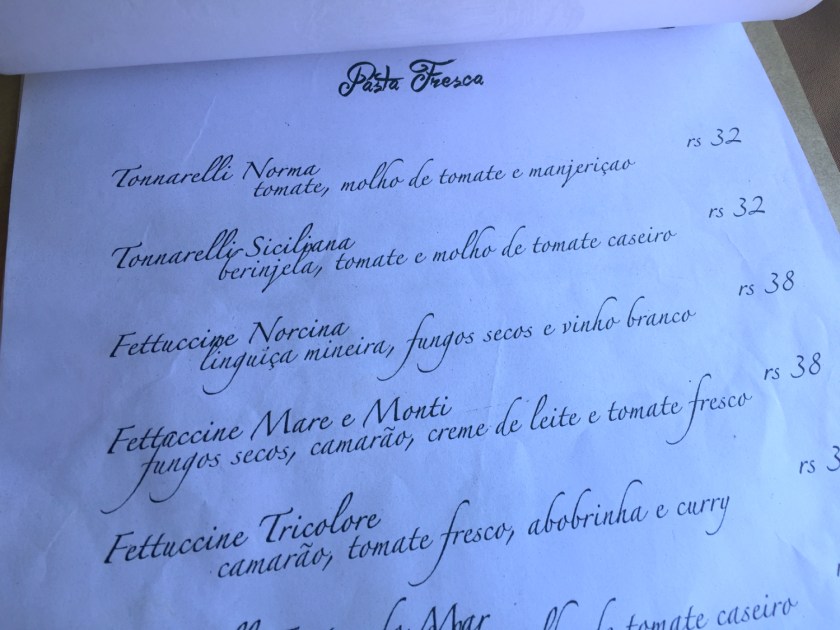 Pasta Fresca
rs 32
Tonnarelli Norma
tomate, molho de tomate e manjeriçao
rs 32
Tonnarelli Siciliana
berinjela, tomate e molho de tomate caseiro
rs 38
Fettuccine Norcina
linguiça mineira, fungos secos e vinho branco
rs 38
Fettaccine Mare e Monti
fungos secos, camarão, creme de leite e tomate fresco
rs
Fettuccine Tricolore
camarão, tomate fresco, abobrinha e curry
Mar
tomate caseiro